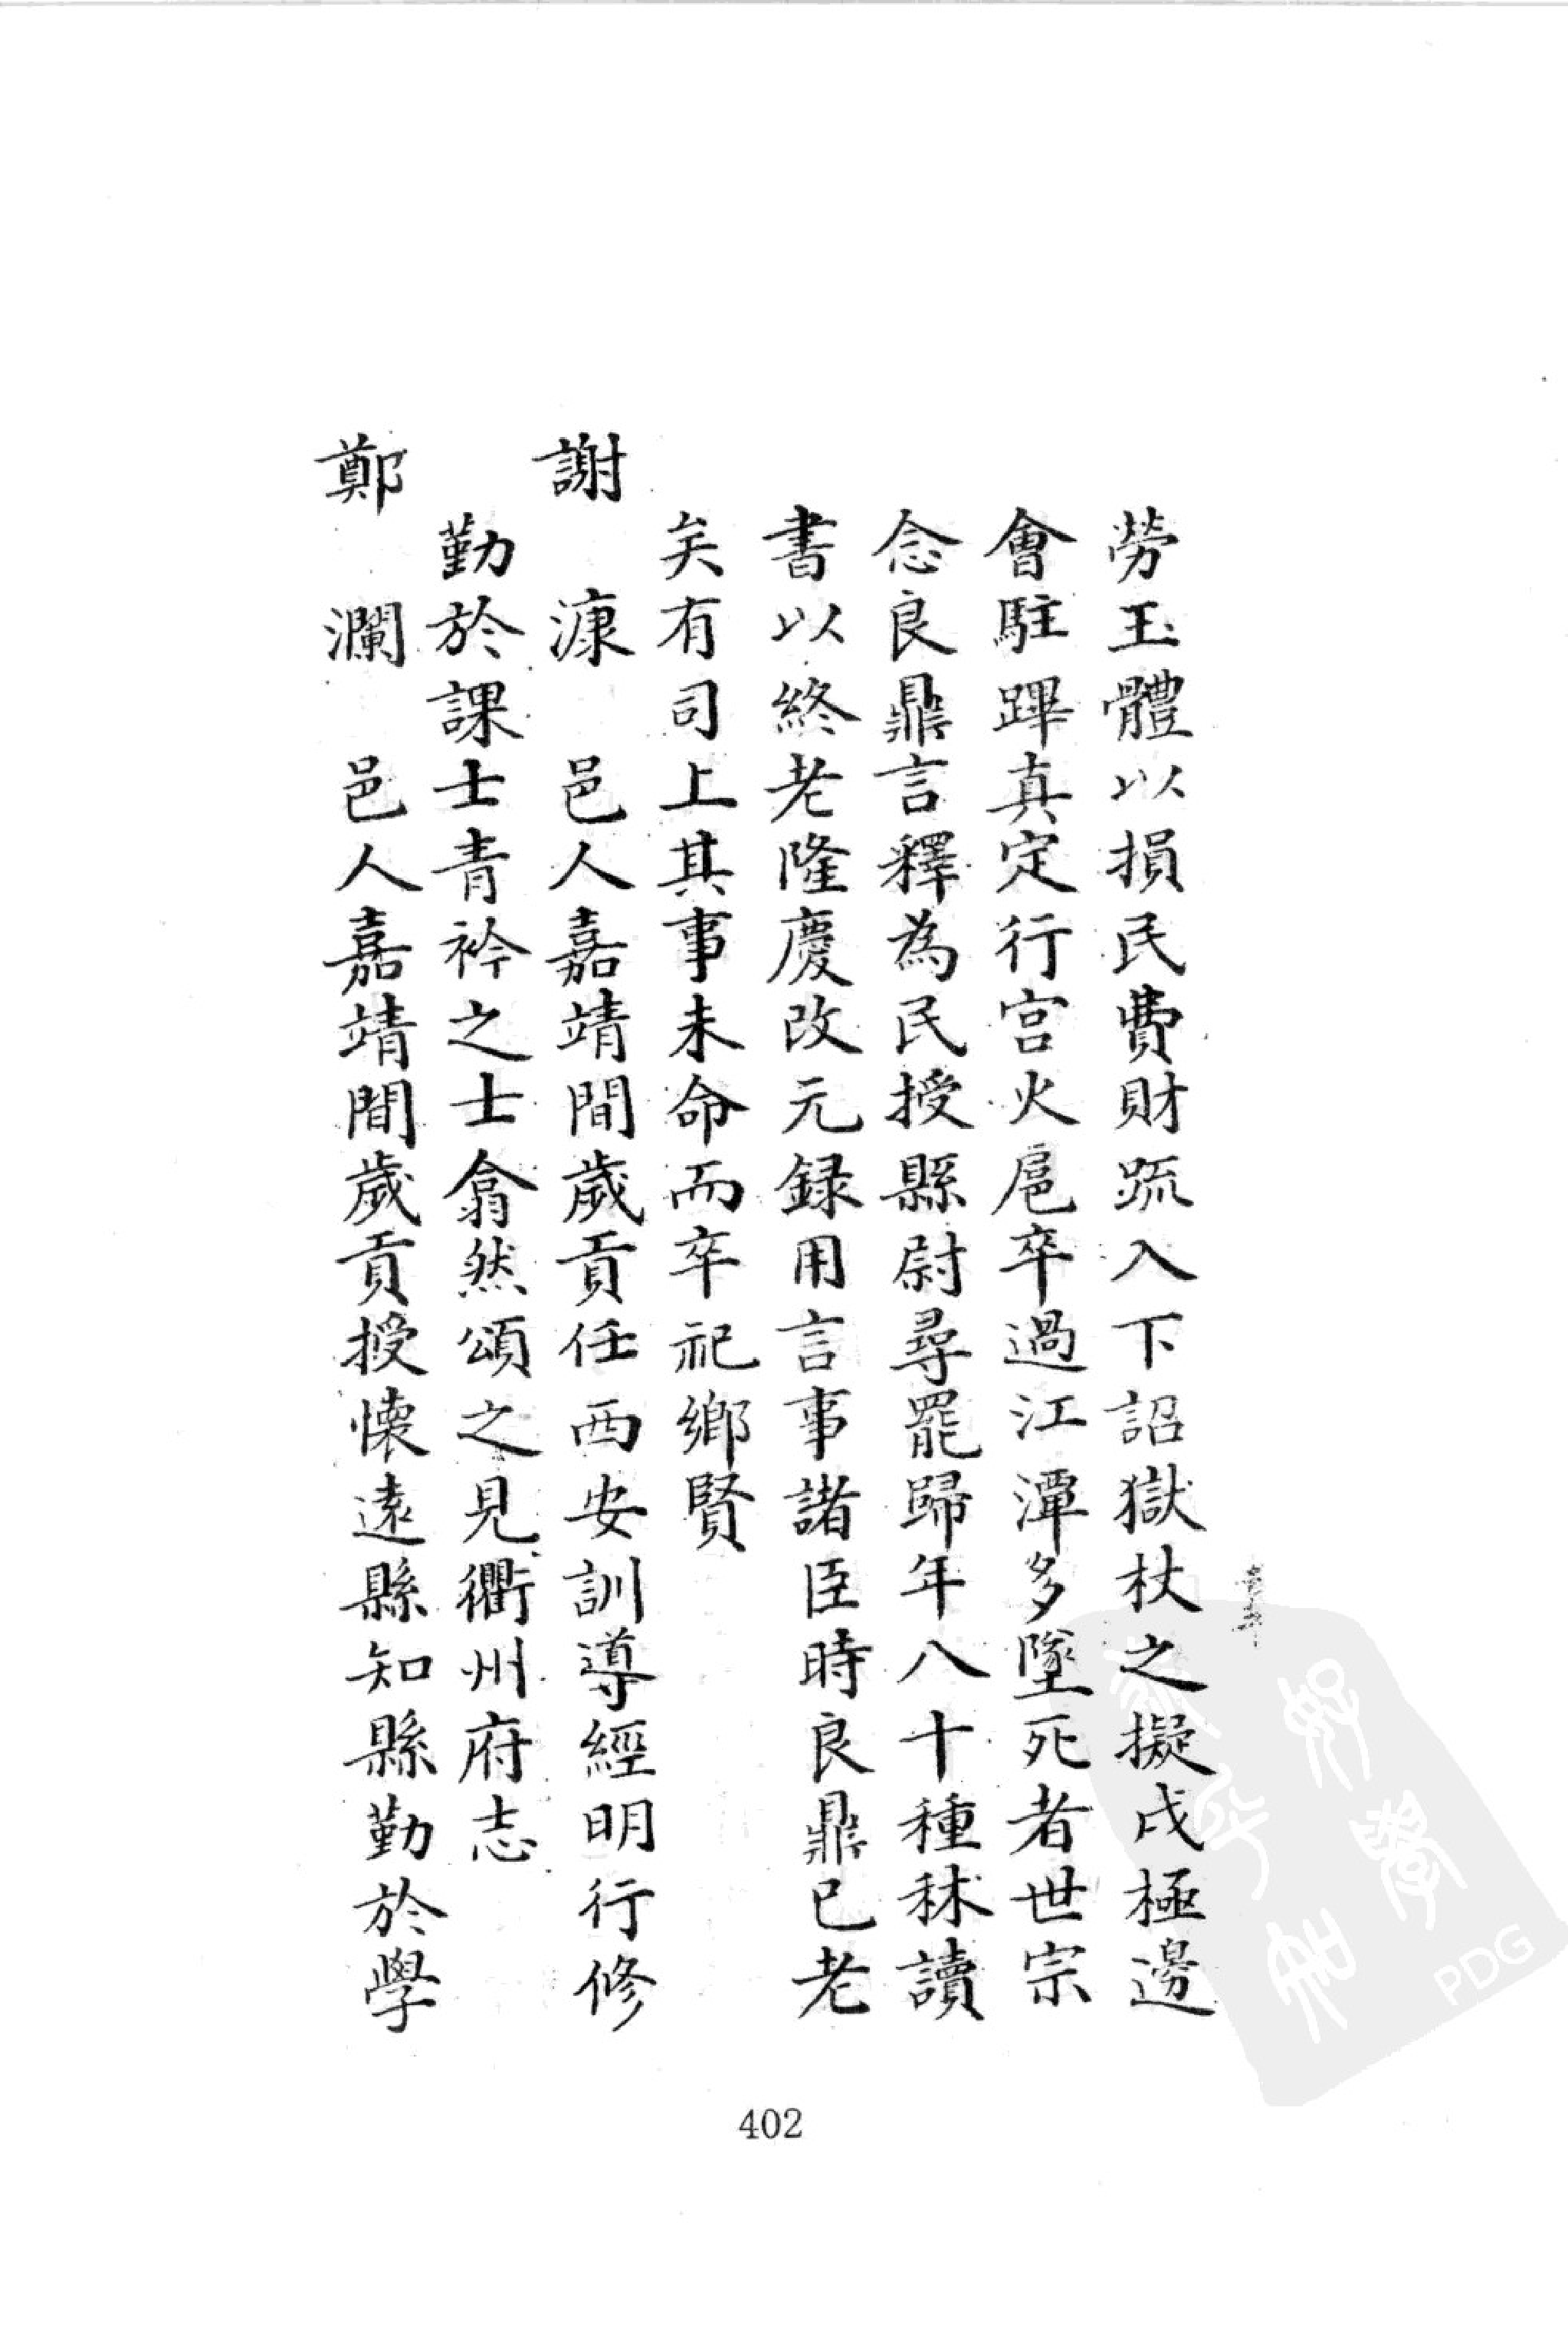 勞玉體以損民費財疏入下詔獄杖之擬戍極邊
會駐蹕真定行宮火扈卒過江潭多墜死者世宗
念良鼎言釋為民授縣尉尋罷歸年八十種秫讀
書以終老隆慶改元録用言事諸臣時良鼎已老
矣有司上其事未命而卒祀鄉賢
謝 漮 邑人嘉靖間歲貢任西安訓導經明行修
勤於課士青衿之士翕然頌之見衢州府志
鄭 瀾 邑人嘉靖間歲貢授懷遠縣知縣勤於學
402
PDG